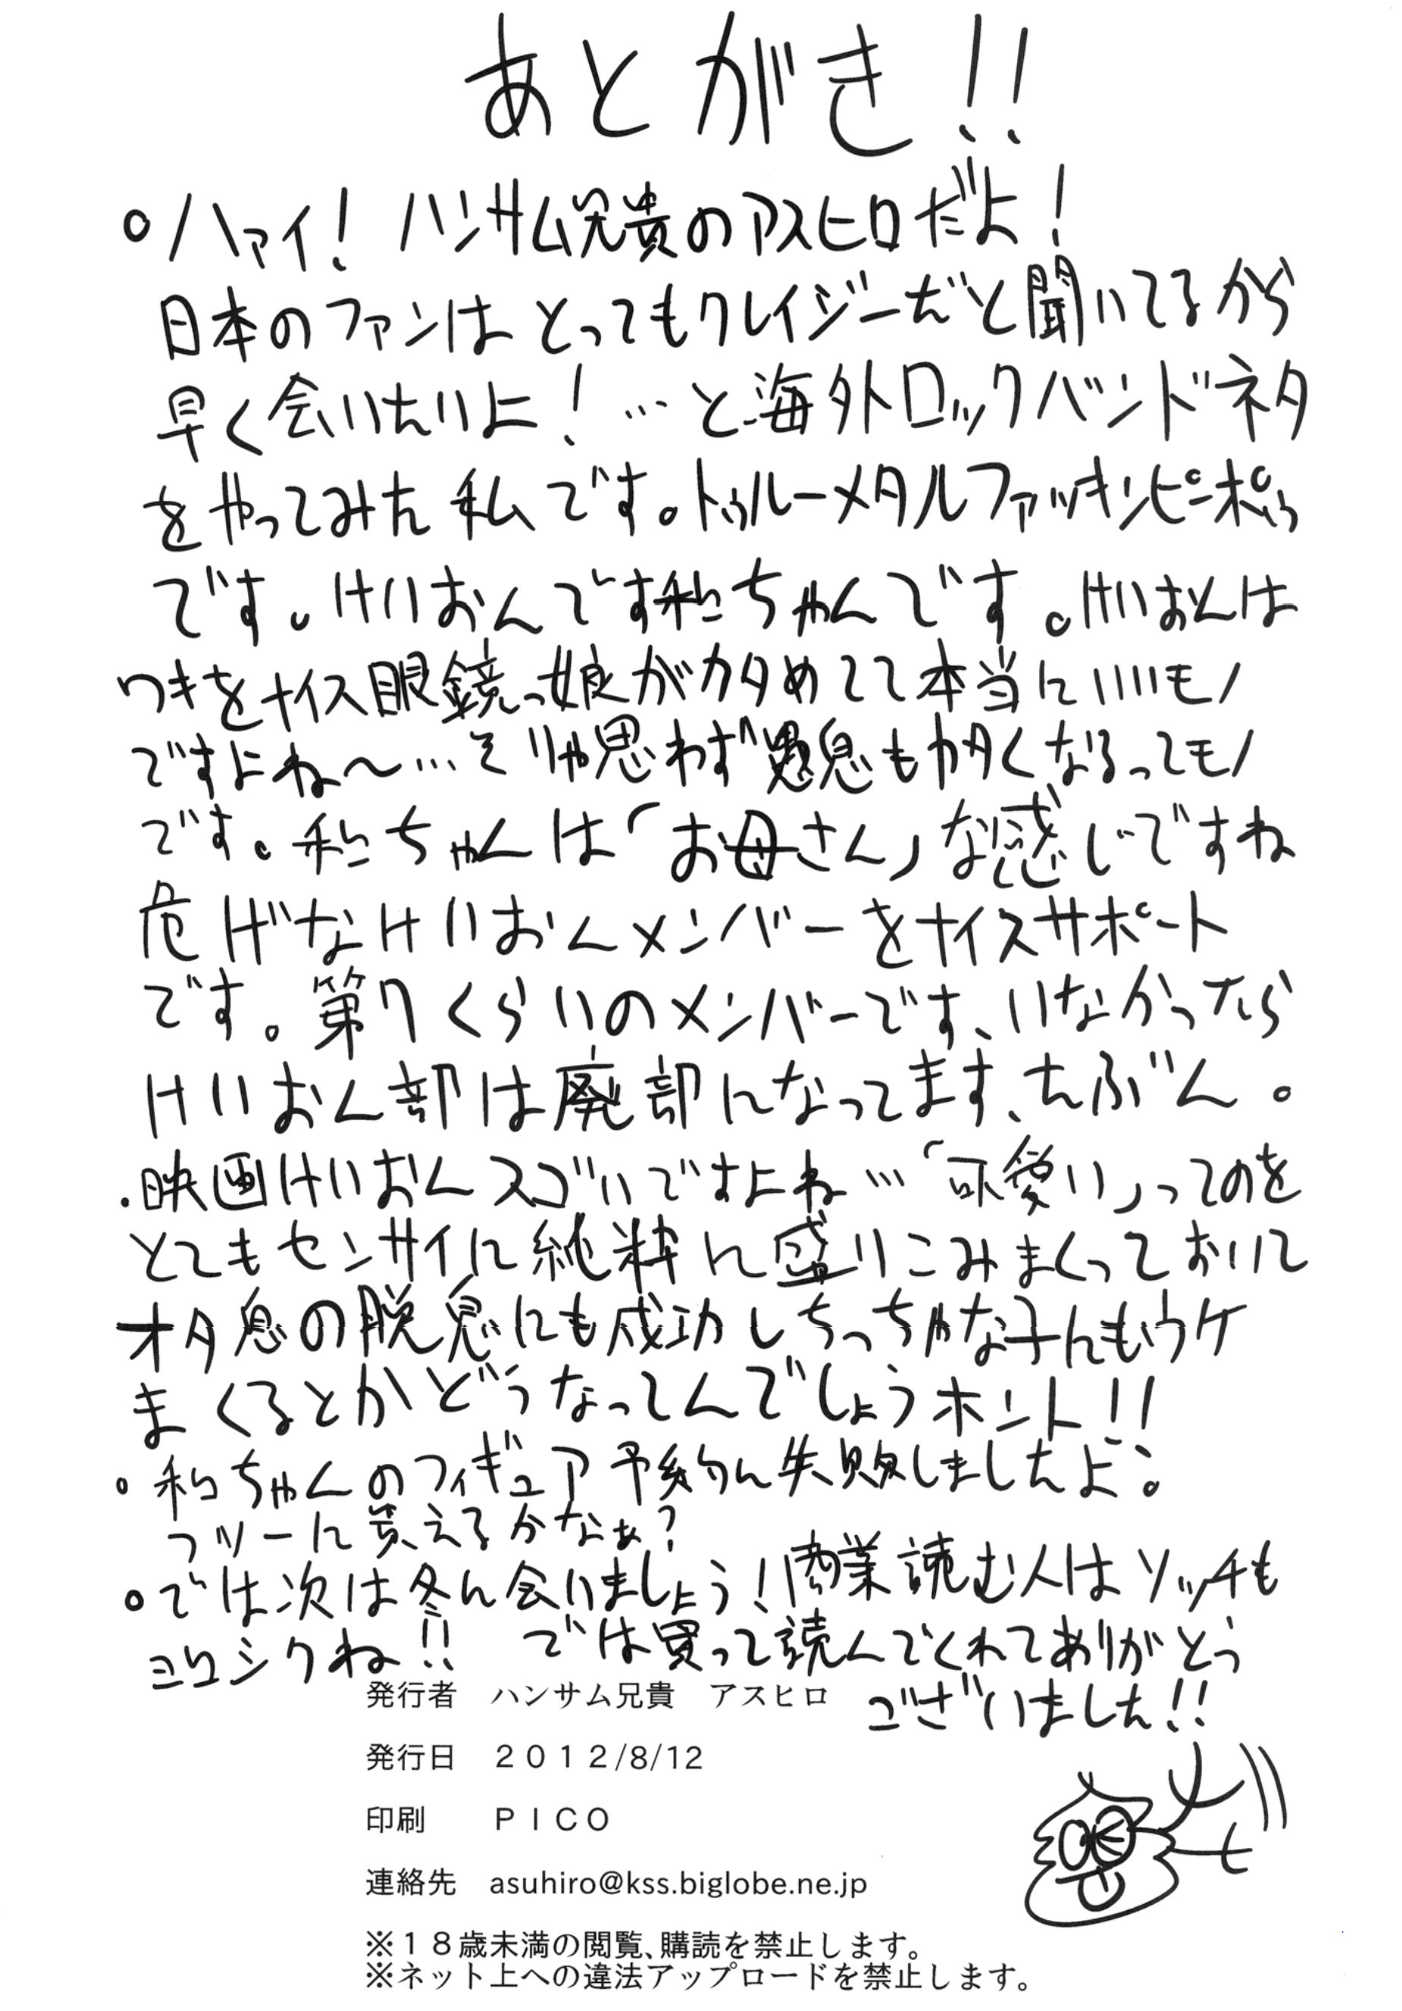 あとがき!!
○ハァイ!ハンサム兄貴のアスヒロだよ!
日本のファンはとってもクレイジーだと聞いてるから
早く会いたいよ!…と海外ロックバンドネタ
をやってみた私です。トゥルーメタルファッキンピンポゥ
です。けいおんです和ちゃんです。けいおんは
ワキをナイス眼鏡っ娘がカタめてて本当にいいモノ
ですよね〜…そりゃ思わず愚息もカタくなるってモノ
です。和ちゃんは「お母さん」な感じですね
危げなけいおんメンバーをナイスサポート
です。第7くらいのメンバーです、いなかったら
けいおん部は廃部になってます、たぶん。
・映画けいおんスゴいですよね…「可愛い」ってのを
とてもセンサイに純粋に盛りこみまくっておいて
オタ息の脱息にも成功しちっちゃな子にもウケ
まくるとかどうなってんでしょうホント!!
○和ちゃんのフィギュア予約に失敗しましたよ。
フツーに買えるかなぁ?
○では次は冬に会いましょう!商業読む人はソッチも
ヨロシクね!! では買って読んでくれてありがとう
ございました!!
発行者 ハンサム兄貴 アスヒロ
発行日 2012/8/12
印刷 PICO
連絡先 asuhiro@kss.biglobe.ne.jp
※18歳未満の閲覧、購読を禁止します。
※ネット上への違法アップロードを禁止します。